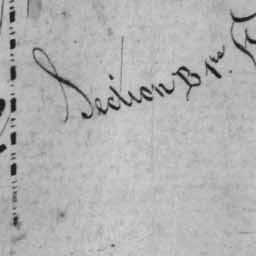 Section B 1re